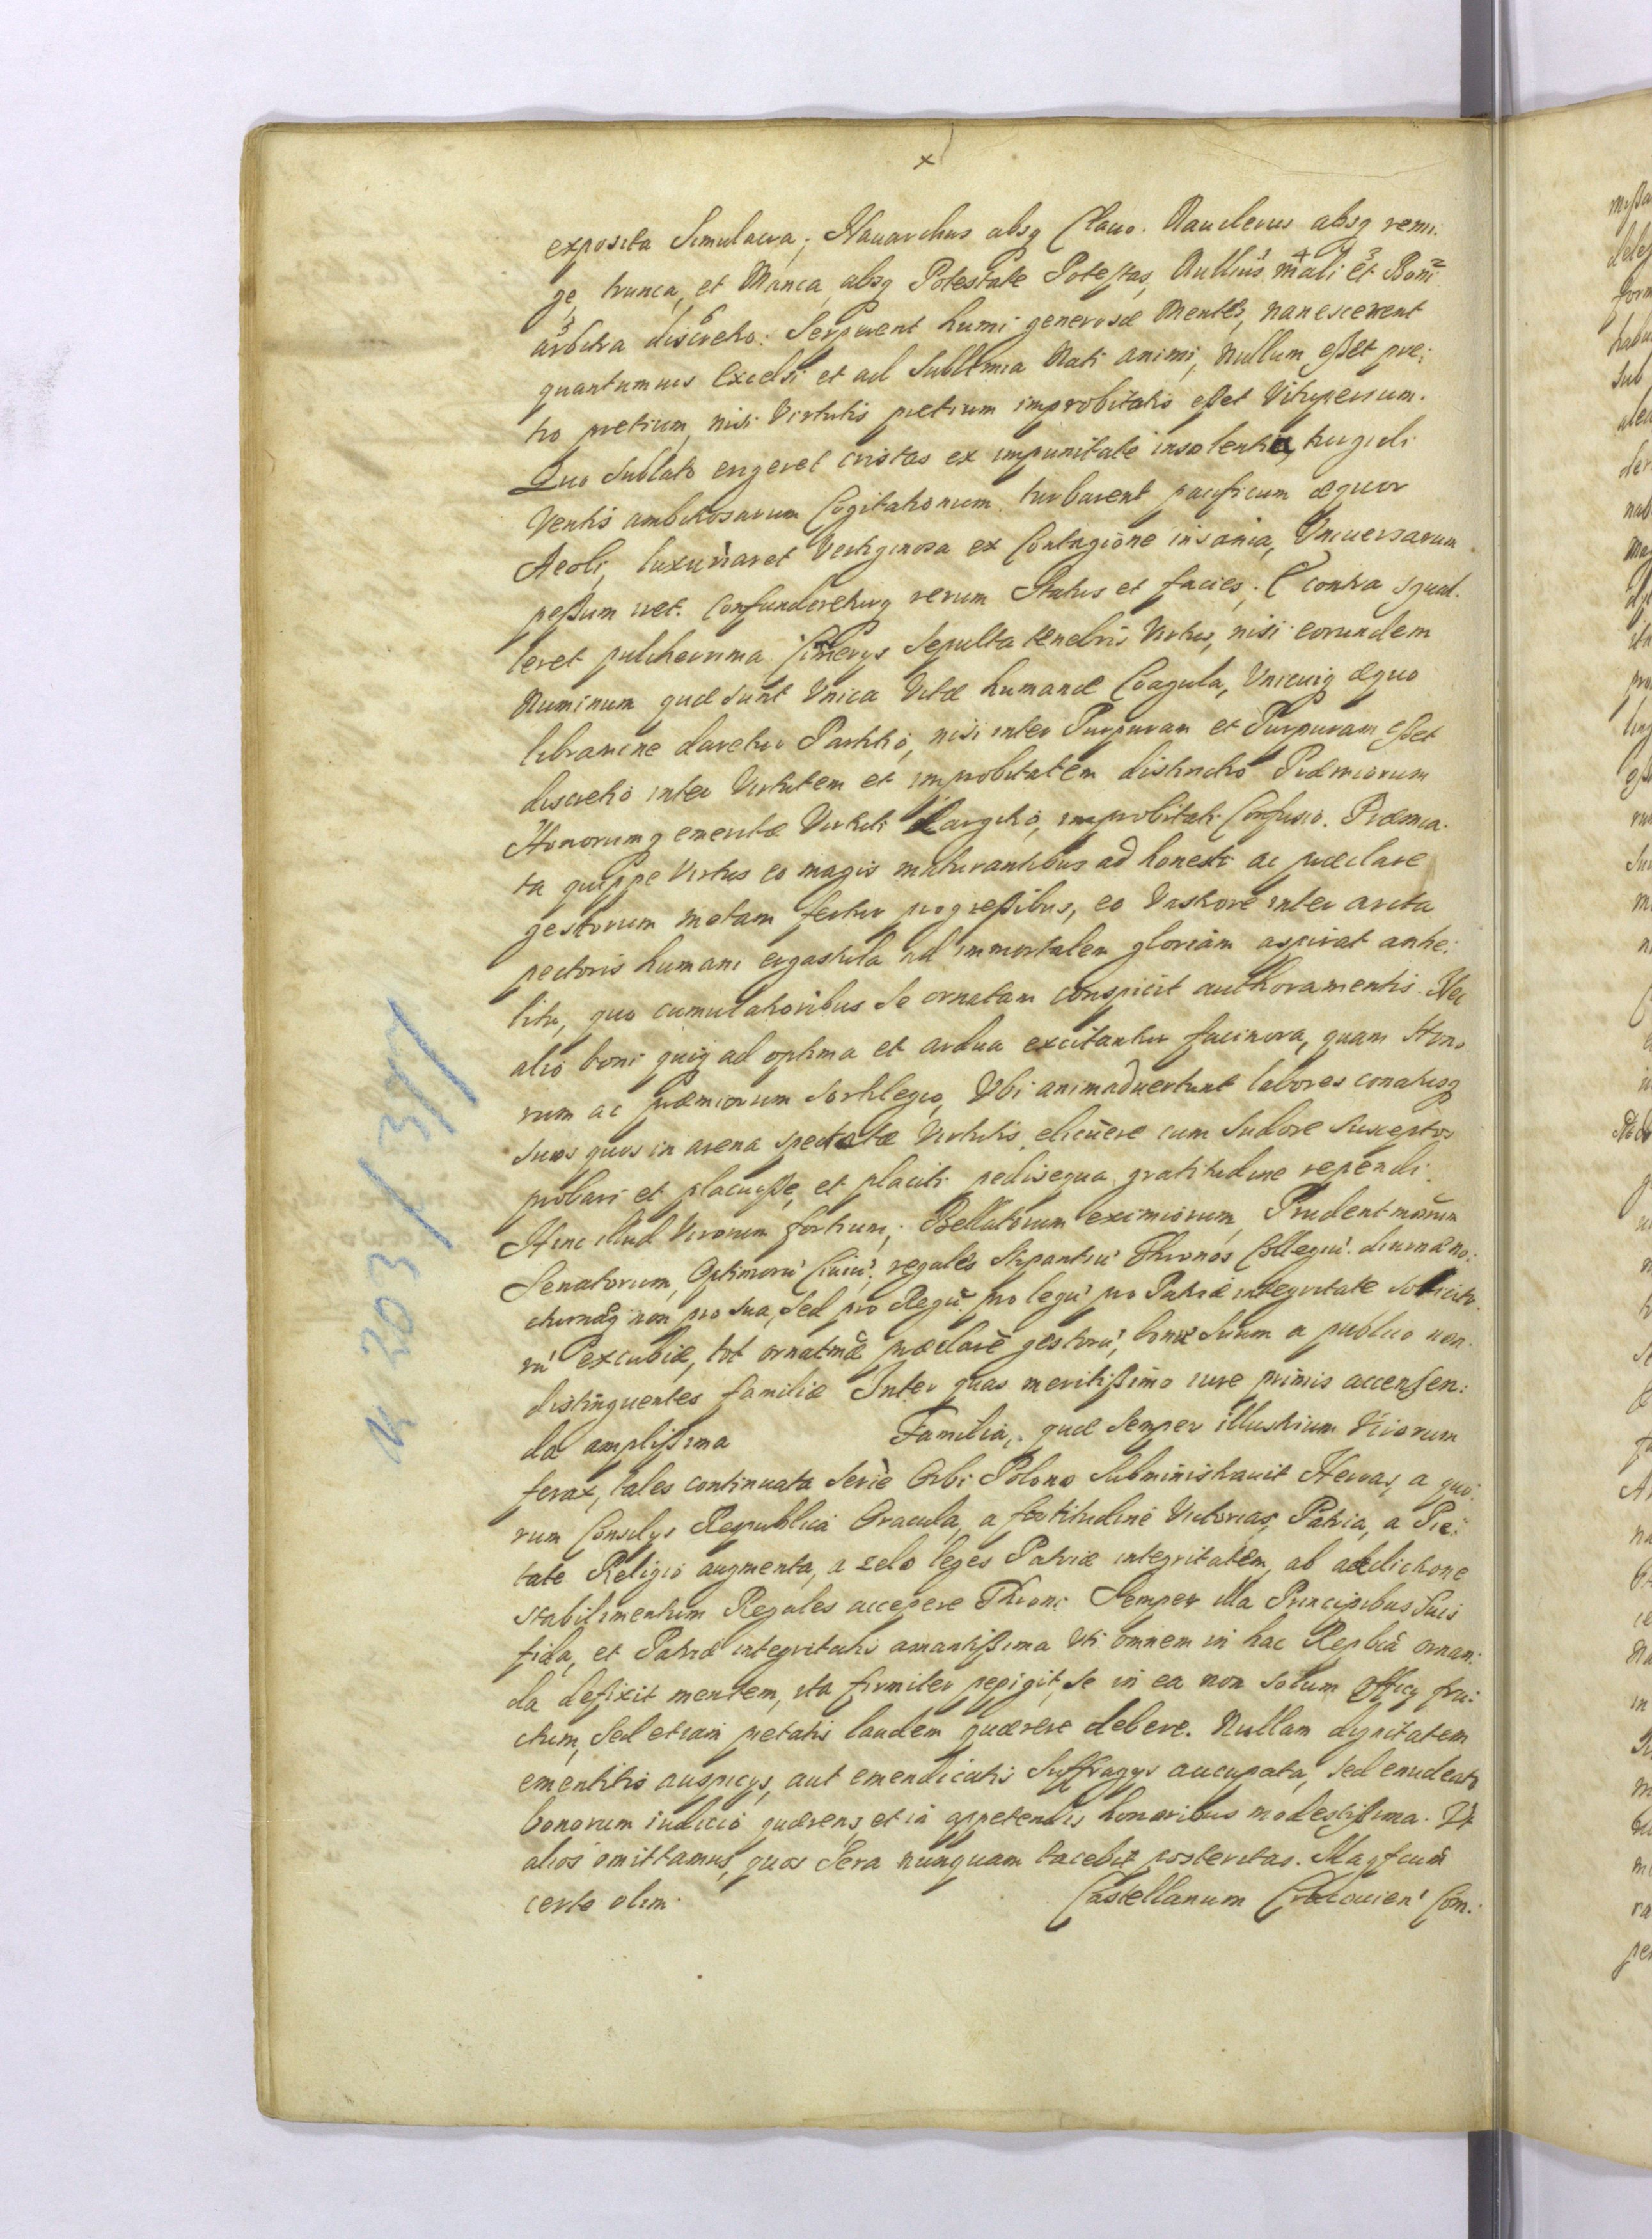 x
exposita Simulacra; Nauarchus absq Clauo. Nauclerus absq remi:
ge, trunca, et Manca, absq Potestate Potestas, Nullius mali et Boni
arbitra discretio: Serperent humi generosæ Mentes, vanescerent
quantumuis Excelsi et ad Sublimia Nati animi, Nullum esset pre:
tio pretium, nisi Virtutis pretium improbitatis esset Vituperium.
Quo Sublato erigeret cristas ex impunitate insolentia, turgidi
Ventis ambitiosarum Cogitationum turbarent pacificum æquor
Aeoli, luxuriaret Vertiginosa ex Contagione insania, Vniuersarum
pessum iret. Confundereturq rerum Status et facies; E contra squal:
leret pulcherrima Cimerys Sepulta tenebris Virtus, nisi eorundem
Numinum quæ Sunt Vnica Vitæ humanæ Coagula, Vnicuiq æquo
libramine daretur Partitio, nisi inter Purpuram et Purpuram esset
discretio inter Virtutem et improbitatem distinctio Præmiorum
Honorumq emeritæ Virtuti Largitio, improbitati Confusio. Præmia:
ta quippe Virtus eo magis maturantibus ad honeste ac præclare
gestorum metam fertur progressibus, eo Vastiore inter arcta
pectoris humani ergastula ad immortalem gloriam aspirat anhe:
litu, quo cumulatioribus Se ornatam conspicit authoramentis. Nec
alio boni quiq ad optima et ardua excitantur facinora, quam Hono
rum ac præmiorum Sortilegio, Vbi animaduertunt labores conatusq
suos quos in arena spectatæ Virtutis elicuere cum Sudore Susceptos
probari et placuisse, et placiti pedisequa gratitudine rependi.
Hinc illud Virorum fortium; Bellatorum eximiorum, Prudentmorum
Senatorum, Optimoru Ciuiu, regales Stipantiu Thronos Collegiu. diurnæ no:
cturnæq non pro Sua, Sed pro Regu, pro legu pro Patriæ integritate Sollicito
ru excubiæ, tot ornatmæ præclarè gestoru, bonu Suum a publico non
distinguentes familiæ Inter quas meritissimo iure primis accensen:
da amplissima Familia, quæ Semper illustrium Virorum
ferax, tales continuata Serie Orbi Polono Subministrauit Heroas, a quo:
rum Consilys Respublica Oracula, a fortitudine Victorias, Patria, a Pie:
tate Religio augmenta, a zelo leges Patriæ integritatem, ab addictione
stabilimentum Regales accepere Throni Semper illa Principibus Suis
fida, et Patriæ integritatis amantissima Vti omnem in hac Replicâ ornan:
da defixit mentem, ita firmiter pepigit, Se in ea non Solum Officy fru:
ctum, Sed etiam pietatis laudem quærere debere. Nullam dignitatem
ementitis auspicys, aut emendicatis Suffragys aucupata, Sed enucleato
bonorum iudicio quærens, et in appetendis honoribus modestissima. Vt
alios omittamus, quos Sera nunquam tacebit posteritas. Magfcum
certe olim Castellanum Cracouien' Com: